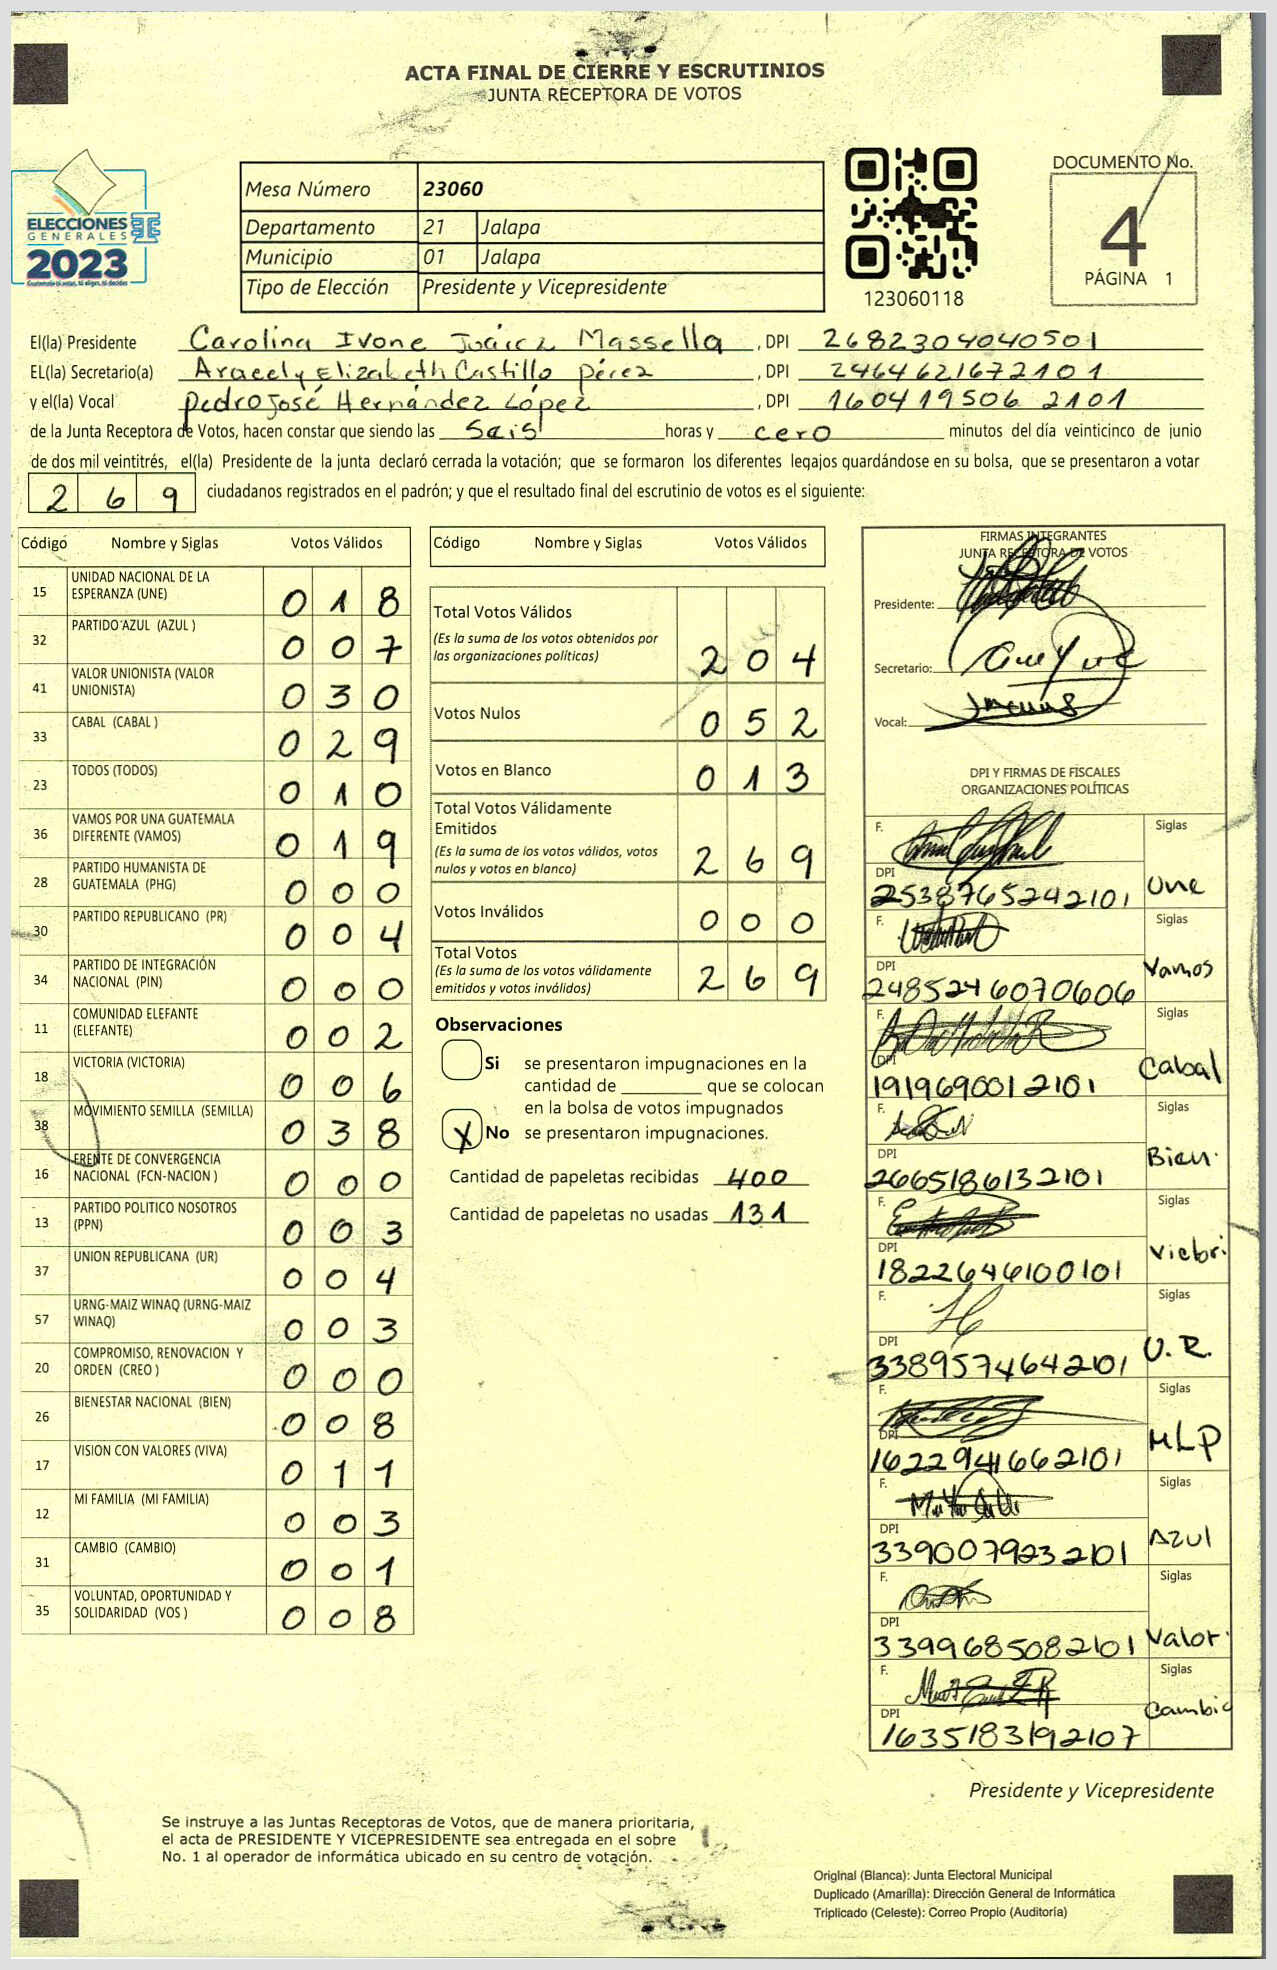 ACTA FINAL DE CIERRE Y ESCRUTINIOS
JUNTA RECEPTORA DE VOTOS
ELECCIONES
GENERALES
2023
Mesa Número 23060
Departamento 21 Jalapa
Municipio 01 Jalapa
Tipo de Elección Presidente y Vicepresidente
123060118
DOCUMENTO No.
4
PÁGINA 1
El(la) Presidente Carolina Ivone Juárez Massella, DPI 2682304040501
EL(la) Secretario(a) Aracely Elizabeth Castillo Pérez, DPI 2464621672101
y el(la) Vocal Pedro José Hernández López, DPI 160419506 2101
de la Junta Receptora de Votos, hacen constar que siendo las Seis horas y cero minutos del día veinticinco de junio
de dos mil veintitrés, el(la) Presidente de la junta declaró cerrada la votación; que se formaron los diferentes legajos guardándose en su bolsa, que se presentaron a votar
2 6 9 ciudadanos registrados en el padrón; y que el resultado final del escrutinio de votos es el siguiente:
Código Nombre y Siglas Votos Válidos
15 UNIDAD NACIONAL DE LA ESPERANZA (UNE) 0 1 8
32 PARTIDO AZUL (AZUL ) 0 0 7
41 VALOR UNIONISTA (VALOR UNIONISTA) 0 3 0
33 CABAL (CABAL ) 0 2 9
23 TODOS (TODOS) 0 1 0
36 VAMOS POR UNA GUATEMALA DIFERENTE (VAMOS) 0 1 9
28 PARTIDO HUMANISTA DE GUATEMALA (PHG) 0 0 0
30 PARTIDO REPUBLICANO (PR) 0 0 4
34 PARTIDO DE INTEGRACIÓN NACIONAL (PIN) 0 0 0
11 COMUNIDAD ELEFANTE (ELEFANTE) 0 0 2
18 VICTORIA (VICTORIA) 0 0 6
38 MOVIMIENTO SEMILLA (SEMILLA) 0 3 8
16 FRENTE DE CONVERGENCIA NACIONAL (FCN-NACION ) 0 0 0
13 PARTIDO POLITICO NOSOTROS (PPN) 0 0 3
37 UNION REPUBLICANA (UR) 0 0 4
57 URNG-MAIZ WINAQ (URNG-MAIZ WINAQ) 0 0 3
20 COMPROMISO, RENOVACION Y ORDEN (CREO ) 0 0 0
26 BIENESTAR NACIONAL (BIEN) 0 0 8
17 VISION CON VALORES (VIVA) 0 1 1
12 MI FAMILIA (MI FAMILIA) 0 0 3
31 CAMBIO (CAMBIO) 0 0 1
35 VOLUNTAD, OPORTUNIDAD Y SOLIDARIDAD (VOS ) 0 0 8
Código Nombre y Siglas Votos Válidos
Total Votos Válidos
(Es la suma de los votos obtenidos por
las organizaciones políticas) 2 0 4
Votos Nulos 0 5 2
Votos en Blanco 0 1 3
Total Votos Válidamente
Emitidos
(Es la suma de los votos válidos, votos
nulos y votos en blanco) 2 6 9
Votos Inválidos 0 0 0
Total Votos
(Es la suma de los votos válidamente
emitidos y votos inválidos) 2 6 9
Observaciones
Si se presentaron impugnaciones en la
cantidad de ________ que se colocan
en la bolsa de votos impugnados
X No se presentaron impugnaciones.
Cantidad de papeletas recibidas 400
Cantidad de papeletas no usadas 131
FIRMAS INTEGRANTES
JUNTA RECEPTORA DE VOTOS
Presidente:
Secretario:
Vocal:
DPI Y FIRMAS DE FISCALES
ORGANIZACIONES POLÍTICAS
F. Siglas
DPI
2538765242101 Une
F. Siglas
DPI
2485246070606 Vamos
F. Siglas
DPI
1919690012101 Cabal
F. Siglas
DPI
2665186132101 Bien.
F. Siglas
DPI
1822646100101 Victori
F. Siglas
DPI
3389574642101 U.R.
F. Siglas
DPI
1622941662101 MLP
F. Siglas
DPI
3390079232101 Azul
F. Siglas
DPI
3399685082101 Valor.
F. Siglas
DPI
1635183192107 Cambio
Presidente y Vicepresidente
Se instruye a las Juntas Receptoras de Votos, que de manera prioritaria,
el acta de PRESIDENTE Y VICEPRESIDENTE sea entregada en el sobre
No. 1 al operador de informática ubicado en su centro de votación.
Original (Blanca): Junta Electoral Municipal
Duplicado (Amarilla): Dirección General de Informática
Triplicado (Celeste): Correo Propio (Auditoría)